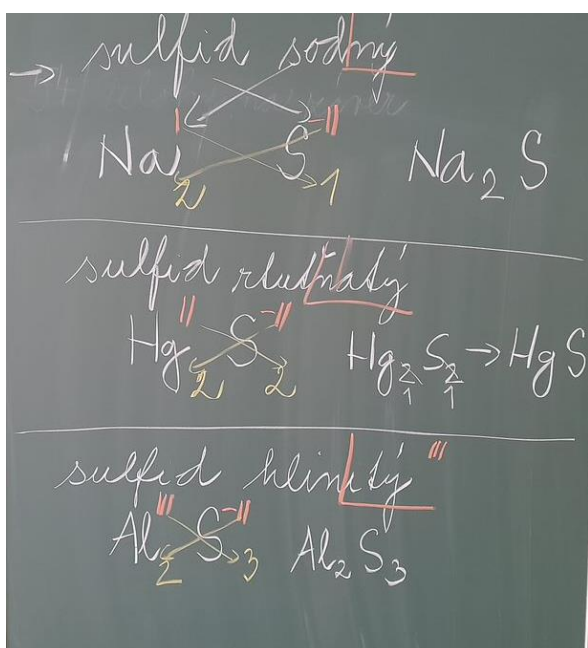 → sulfid sodný
Na^I_2 S^-II_1 Na₂S
sulfid rtuťnatý
Hg^II_2 S^-II_2 Hg₂S₂ → HgS
1 1
sulfid hlinitý III
Al^III_2 S^-II_3 Al₂S₃